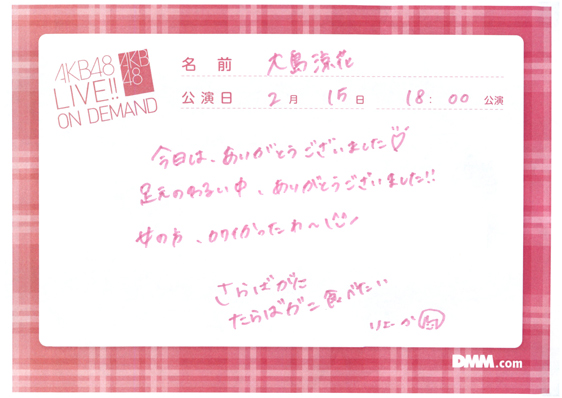 AKB48
LIVE!!
ON DEMAND
AKB
48
名前 大島涼花
公演日 2月 15日 18:00 公演
今日は、ありがとうございました♡
足元のわるい中、ありがとうございました!!
女の方、カワイかったわ〜
さらばがに
たらばがに食べたい
りょーか
DMM.com